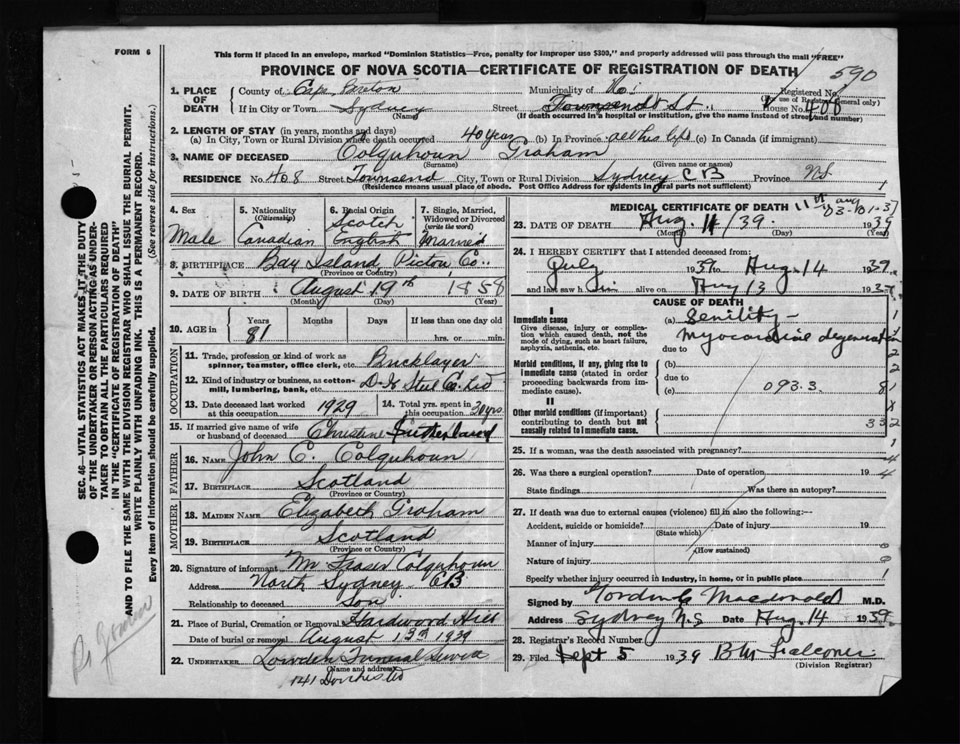 FORM 6
This form if placed in an envelope, marked "Dominion Statistics—Free, penalty for improper use $300," and properly addressed will pass through the mail "FREE"
PROVINCE OF NOVA SCOTIA—CERTIFICATE OF REGISTRATION OF DEATH
590
1. PLACE OF DEATH
County of Cape Breton Municipality of Registered No.
(For use of Registrar General only)
If in City or Town Sydney Street Townsend St. House No. 408
(Name) (If death occurred in a hospital or institution, give the name instead of street and number)
2. LENGTH OF STAY (in years, months and days)
(a) In City, Town or Rural Division where death occurred 40 years (b) In Province all his life (c) In Canada (if immigrant)
3. NAME OF DECEASED Colquhoun Graham
(Surname) (Given name or names)
RESIDENCE No. 408 Street Townsend City, Town or Rural Division Sydney C B Province N.S.
(Residence means usual place of abode. Post Office Address for residents in rural parts not sufficient)
4. Sex Male
5. Nationality (Citizenship) Canadian
6. Racial Origin Scotch English
7. Single, Married, Widowed or Divorced (write the word) Married
8. BIRTHPLACE Bay Island Pictou Co.
(Province or Country)
9. DATE OF BIRTH August 19th 1858
(Month) (Day) (Year)
10. AGE in Years Months Days If less than one day old
81 hrs. or min.
OCCUPATION
11. Trade, profession or kind of work as spinner, teamster, office clerk, etc. Bricklayer
12. Kind of industry or business, as cotton-mill, lumbering, bank, etc. Steel Co. Ltd
13. Date deceased last worked at this occupation 1929
14. Total yrs. spent in this occupation 30 yrs.
15. If married give name of wife or husband of deceased Christine Sutherland
FATHER
16. NAME John C. Colquhoun
17. BIRTHPLACE Scotland
(Province or Country)
MOTHER
18. MAIDEN NAME Elizabeth Graham
19. BIRTHPLACE Scotland
(Province or Country)
20. Signature of informant Mr Fraser Colquhoun
Address North Sydney CB
Relationship to deceased Son
21. Place of Burial, Cremation or Removal Hardwood Hill
Date of burial or removal August 1939
22. UNDERTAKER Lowden Funeral Service
(Name and address)
141 Dorchester
MEDICAL CERTIFICATE OF DEATH
11th aug
23. DATE OF DEATH Aug. 11/39. 1939
(Month) (Day) (Year)
24. I HEREBY CERTIFY that I attended deceased from:
July 1939 to Aug. 14 1939.
and last saw him alive on Aug 13 193
CAUSE OF DEATH
I
Immediate cause
Give disease, injury or complication which caused death, not the mode of dying, such as heart failure, asphyxia, asthenia, etc.
(a) Senility-
Myocardial degeneration
due to
Morbid conditions, if any, giving rise to immediate cause (stated in order proceeding backwards from immediate cause).
(b)
due to
(c) 093.3
II
Other morbid conditions (if important) contributing to death but not causally related to immediate cause.
332
25. If a woman, was the death associated with pregnancy?
26. Was there a surgical operation? Date of operation 19
State findings Was there an autopsy?
27. If death was due to external causes (violence) fill in also the following:—
Accident, suicide or homicide? Date of injury 19
(State which)
Manner of injury
(How sustained)
Nature of injury
Specify whether injury occurred in industry, in home, or in public place
Signed by Gordon G Macdonald M.D.
Address Sydney N.S Date Aug. 14 1939
28. Registrar's Record Number
29. Filed Sept 5 1939 Falconer
(Division Registrar)
SEC. 46—VITAL STATISTICS ACT MAKES IT THE DUTY OF THE UNDERTAKER OR PERSON ACTING AS UNDERTAKER TO OBTAIN ALL THE PARTICULARS REQUIRED IN THE "CERTIFICATE OF REGISTRATION OF DEATH"
AND TO FILE THE SAME WITH THE DIVISION REGISTRAR WHO SHALL ISSUE THE BURIAL PERMIT.
WRITE PLAINLY WITH UNFADING INK. THIS IS A PERMANENT RECORD.
Every item of information should be carefully supplied. (See reverse side for instructions.)